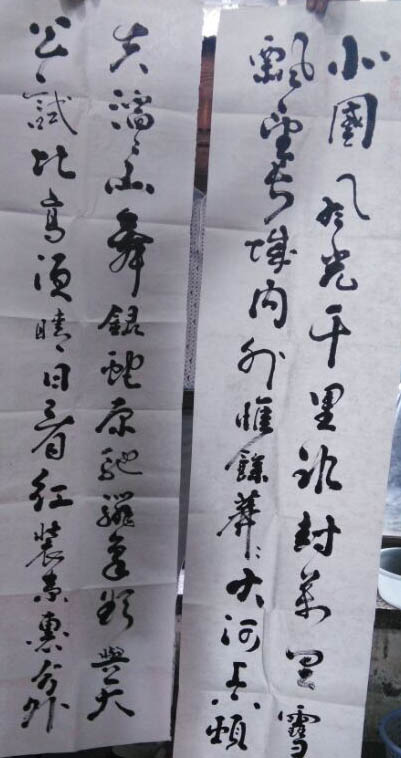 北國风光千里冰封萬里雪
飄望長城内外惟餘莽莽大河上下頓
失滔滔山舞銀蛇原馳蠟象欲與天
公試比高須晴日看紅裝素裹分外